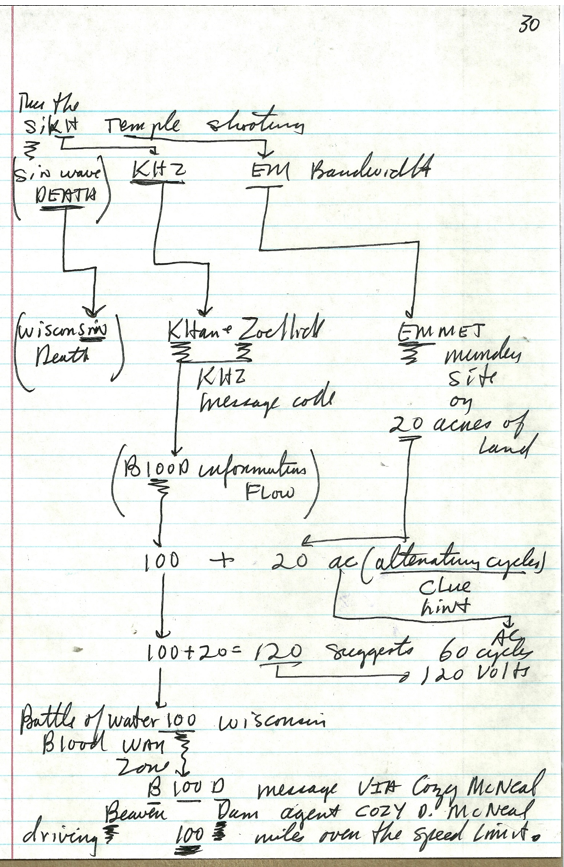 30
Thus the
SiKH Temple shooting
(Sin wave KHZ EM Bandwidth
DEATH)
(Wisconsin KHan + Zoellick EMMET
Death) KHZ munday
message code site
on
20 acres of
land
(B100D information
FLOW)
100 + 20 ac (altenating cycles)
CLUE
hint
AC
100+20=120 suggests 60 cycles
120 Volts
Battle of water 100 Wisconsin
Blood WAR
Zone
B 100 D message VIA Cozy McNeal
Beaver Dam agent COZY D. McNeal
driving 100 miles over the speed limit.